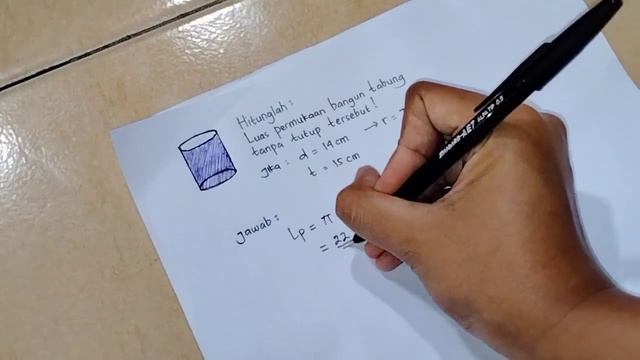 Hitunglah:
Luas permukaan bangun tabung
tanpa tutup tersebut!
Jika: d = 14 cm → r = 7
t = 15 cm
Jawab:
Lp = π
= 22
STANDARD AE7 ALFATIP 0.5